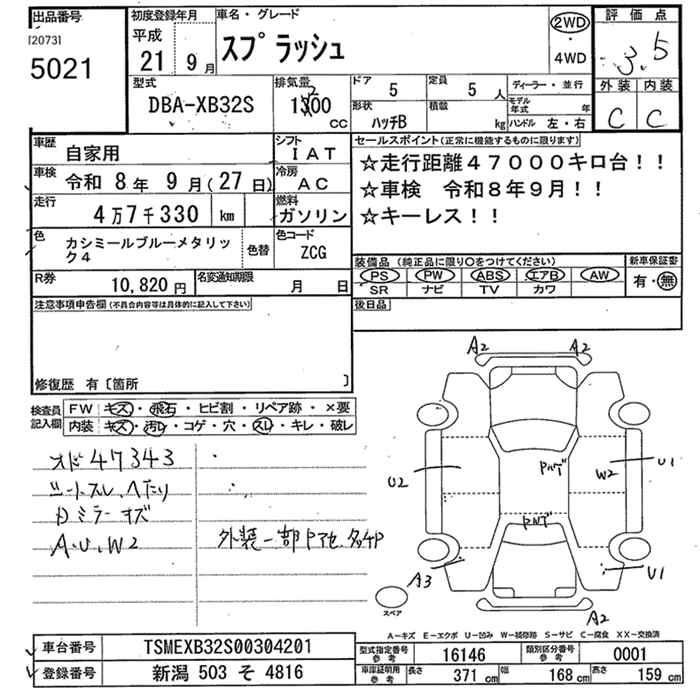 出品番号 初度登録年月 車名・グレード 2WD 評価点
[2073] 平成 スプラッシュ 4WD 3.5
5021 21年 9月 外装 内装
型式 排気量 ドア 定員 ディーラー・並行 C C
DBA-XB32S 1200 CC 5 5人 モデル年式 年
形状 積載 ハンドル 左・右
ハッチB kg
車歴 自家用 シフト IAT セールスポイント(正常に機能するものに限ります)
車検 令和 8年 9月(27日) 冷房 AC ☆走行距離47000キロ台!!
走行 4万7千330 km 燃料 ガソリン ☆車検 令和8年9月!!
☆キーレス!!
色 カシミールブルーメタリック4 色替 色コード ZCG
装備品(純正品に限り○をつけてください) 新車保証書
R券 10,820円 名変通知期限 月 日 PS PW ABS エアB AW 有・無
SR ナビ TV カワ
注意事項申告欄(不具合内容等は具体的に記入して下さい) 後日品
修復歴 有〔箇所 〕
検査員記入欄 FW キズ・飛石・ヒビ割・リペア跡・×要
内装 キズ・汚レ・コゲ・穴・スレ・キレ・破レ
オド47343
シートスレ、ヘたり
Dミラーキズ
A.U.W2 外装一部
A2 A2
U2 W2 U1
A3 U1
A2
スペア
A-キズ E-エクボ U-凹み W-補修跡 S-サビ C-腐食 XX-交換済
車台番号 TSMEXB32S00304201 型式指定番号 参考 16146 類別区分番号 参考 0001
登録番号 新潟 503 そ 4816 車庫証明用 参考 長さ 371cm 幅 168cm 高さ 159cm